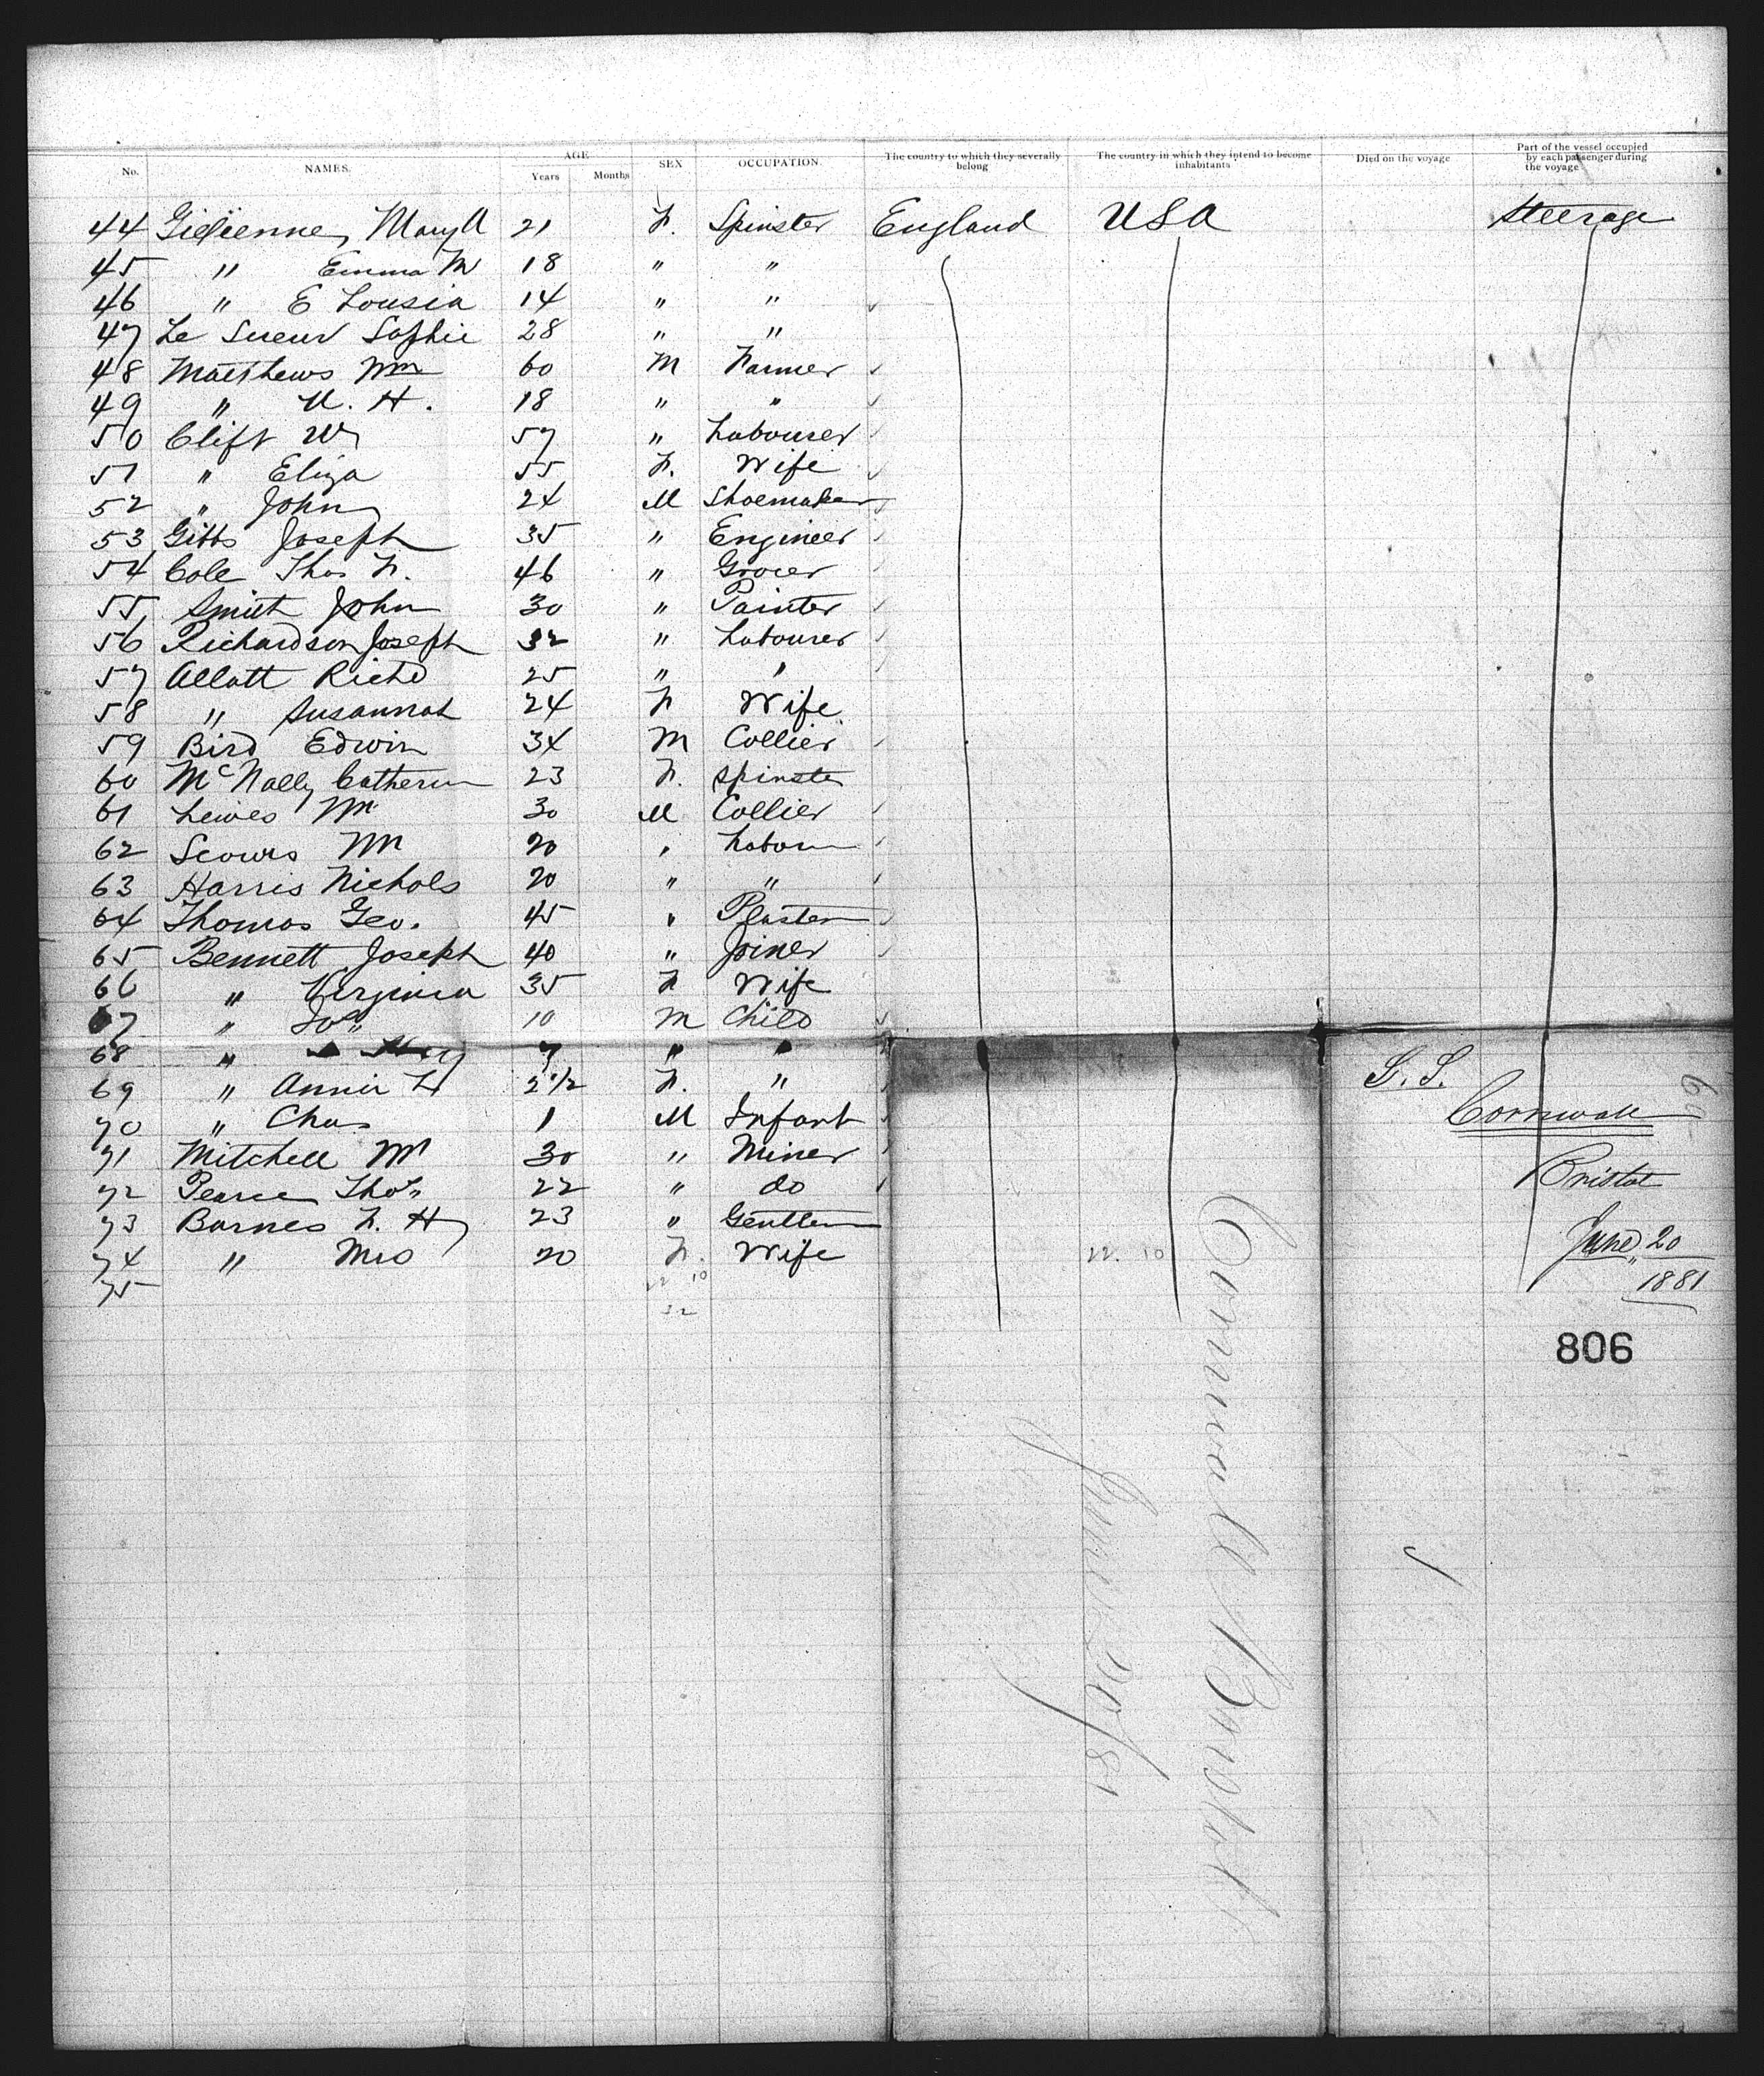 No. NAMES. AGE Years Months SEX OCCUPATION. The country to which they severally belong The country in which they intend to become inhabitants Died on the voyage Part of the vessel occupied by each passenger during the voyage
44 Mary A 21 F. Spinster England USA Steerage
45 " Emma M 18 " "
46 " E Lousia 14 " "
47 Le Sueur Sophie 28 " "
48 Matthews Wm 60 M Farmer
49 " W. H. 18 " "
50 Clift Wm 57 " Labourer
51 " Eliza 55 F. Wife
52 " John 24 M Shoemaker
53 Gibbs Joseph 35 " Engineer
54 Cole Thos F. 46 " Grocer
55 Smith John 30 " Painter
56 Richardson Joseph 32 " Labourer
57 Allott Richd 25 " "
58 " Susannah 24 F Wife
59 Bird Edwin 34 M Collier
60 McNally Catherin 23 F. Spinster
61 Lewes Wm 30 M Collier
62 Wm 20 " Labour
63 Harris Nichols 20 " "
64 Thomas Geo. 45 " Plaster
65 Bennett Joseph 40 " Joiner
66 " Virginia 35 F Wife
67 " Jos 10 M Child
68 " 7 " "
69 " Annie L 2 1/2 F. "
70 " Chas 1 M Infant
71 Mitchell Wm 30 " Miner
72 Pearce Thos 22 " do
73 Barnes F. H 23 " Gentlem
74 " Mrs 20 F. Wife
75
22 10
22
22. 10
S. S.
Cornwall
Bristol
June 20
1881
806
Cornwall Bristol
June 20/81